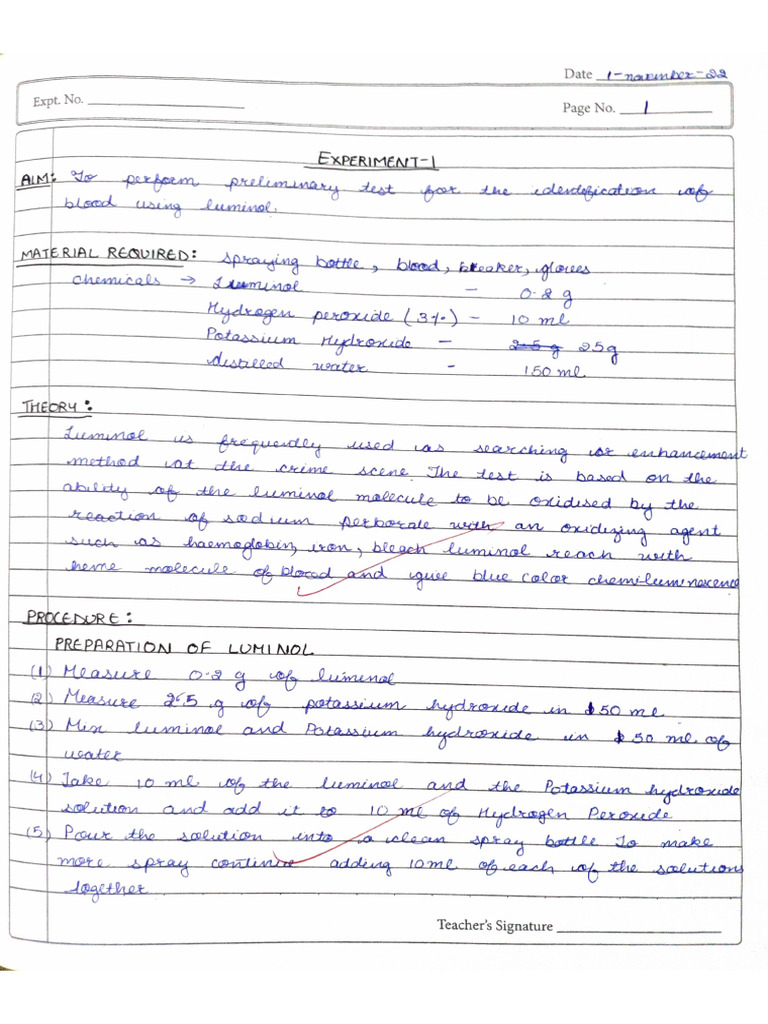 Date 1-november-22
Expt. No.
Page No. 1
EXPERIMENT-1
AIM: To perform preliminary test for the identification of
blood using luminol.
MATERIAL REQUIRED: spraying bottle, blood, breaker, gloves
chemicals → Luminol - 0.2 g
Hydrogen peroxide (3%) - 10 ml
Potassium Hydroxide - 2.5 g 25g
distilled water - 150 ml
THEORY:
Luminol is frequently used as searching or enhancement
method at the crime scene. The test is based on the
ability of the luminol molecule to be oxidised by the
reaction of sodium perborate with an oxidizing agent
such as haemoglobin, iron, bleach luminol reach with
heme molecule of blood and give blue color chemiluminescence
PROCEDURE:
PREPARATION OF LUMINOL
(1) Measure 0.2 g of luminol
(2) Measure 2.5 g of potassium hydroxide in 50 ml
(3) Mix luminol and Potassium hydroxide in 50 ml of
water
(4) Take 10 ml of the luminol and the Potassium hydroxide
solution and add it to 10 ml of Hydrogen Peroxide
(5) Pour the solution into a clean spray bottle To make
more spray continue adding 10ml of each of the solutions
together
Teacher's Signature